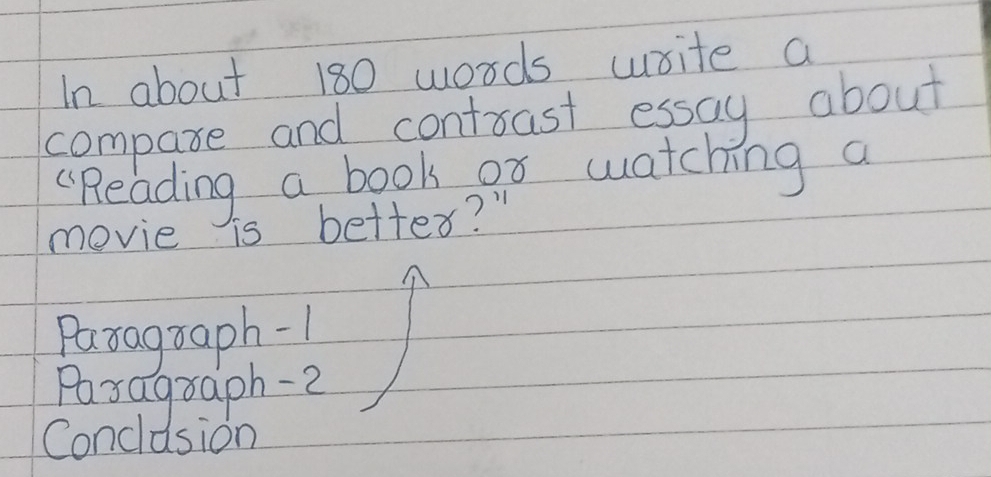 In about 180 words write a
compare and contrast essay about
"Reading a book or watching a
movie is better?"
Paragraph-1
Paragraph-2
Conclusion